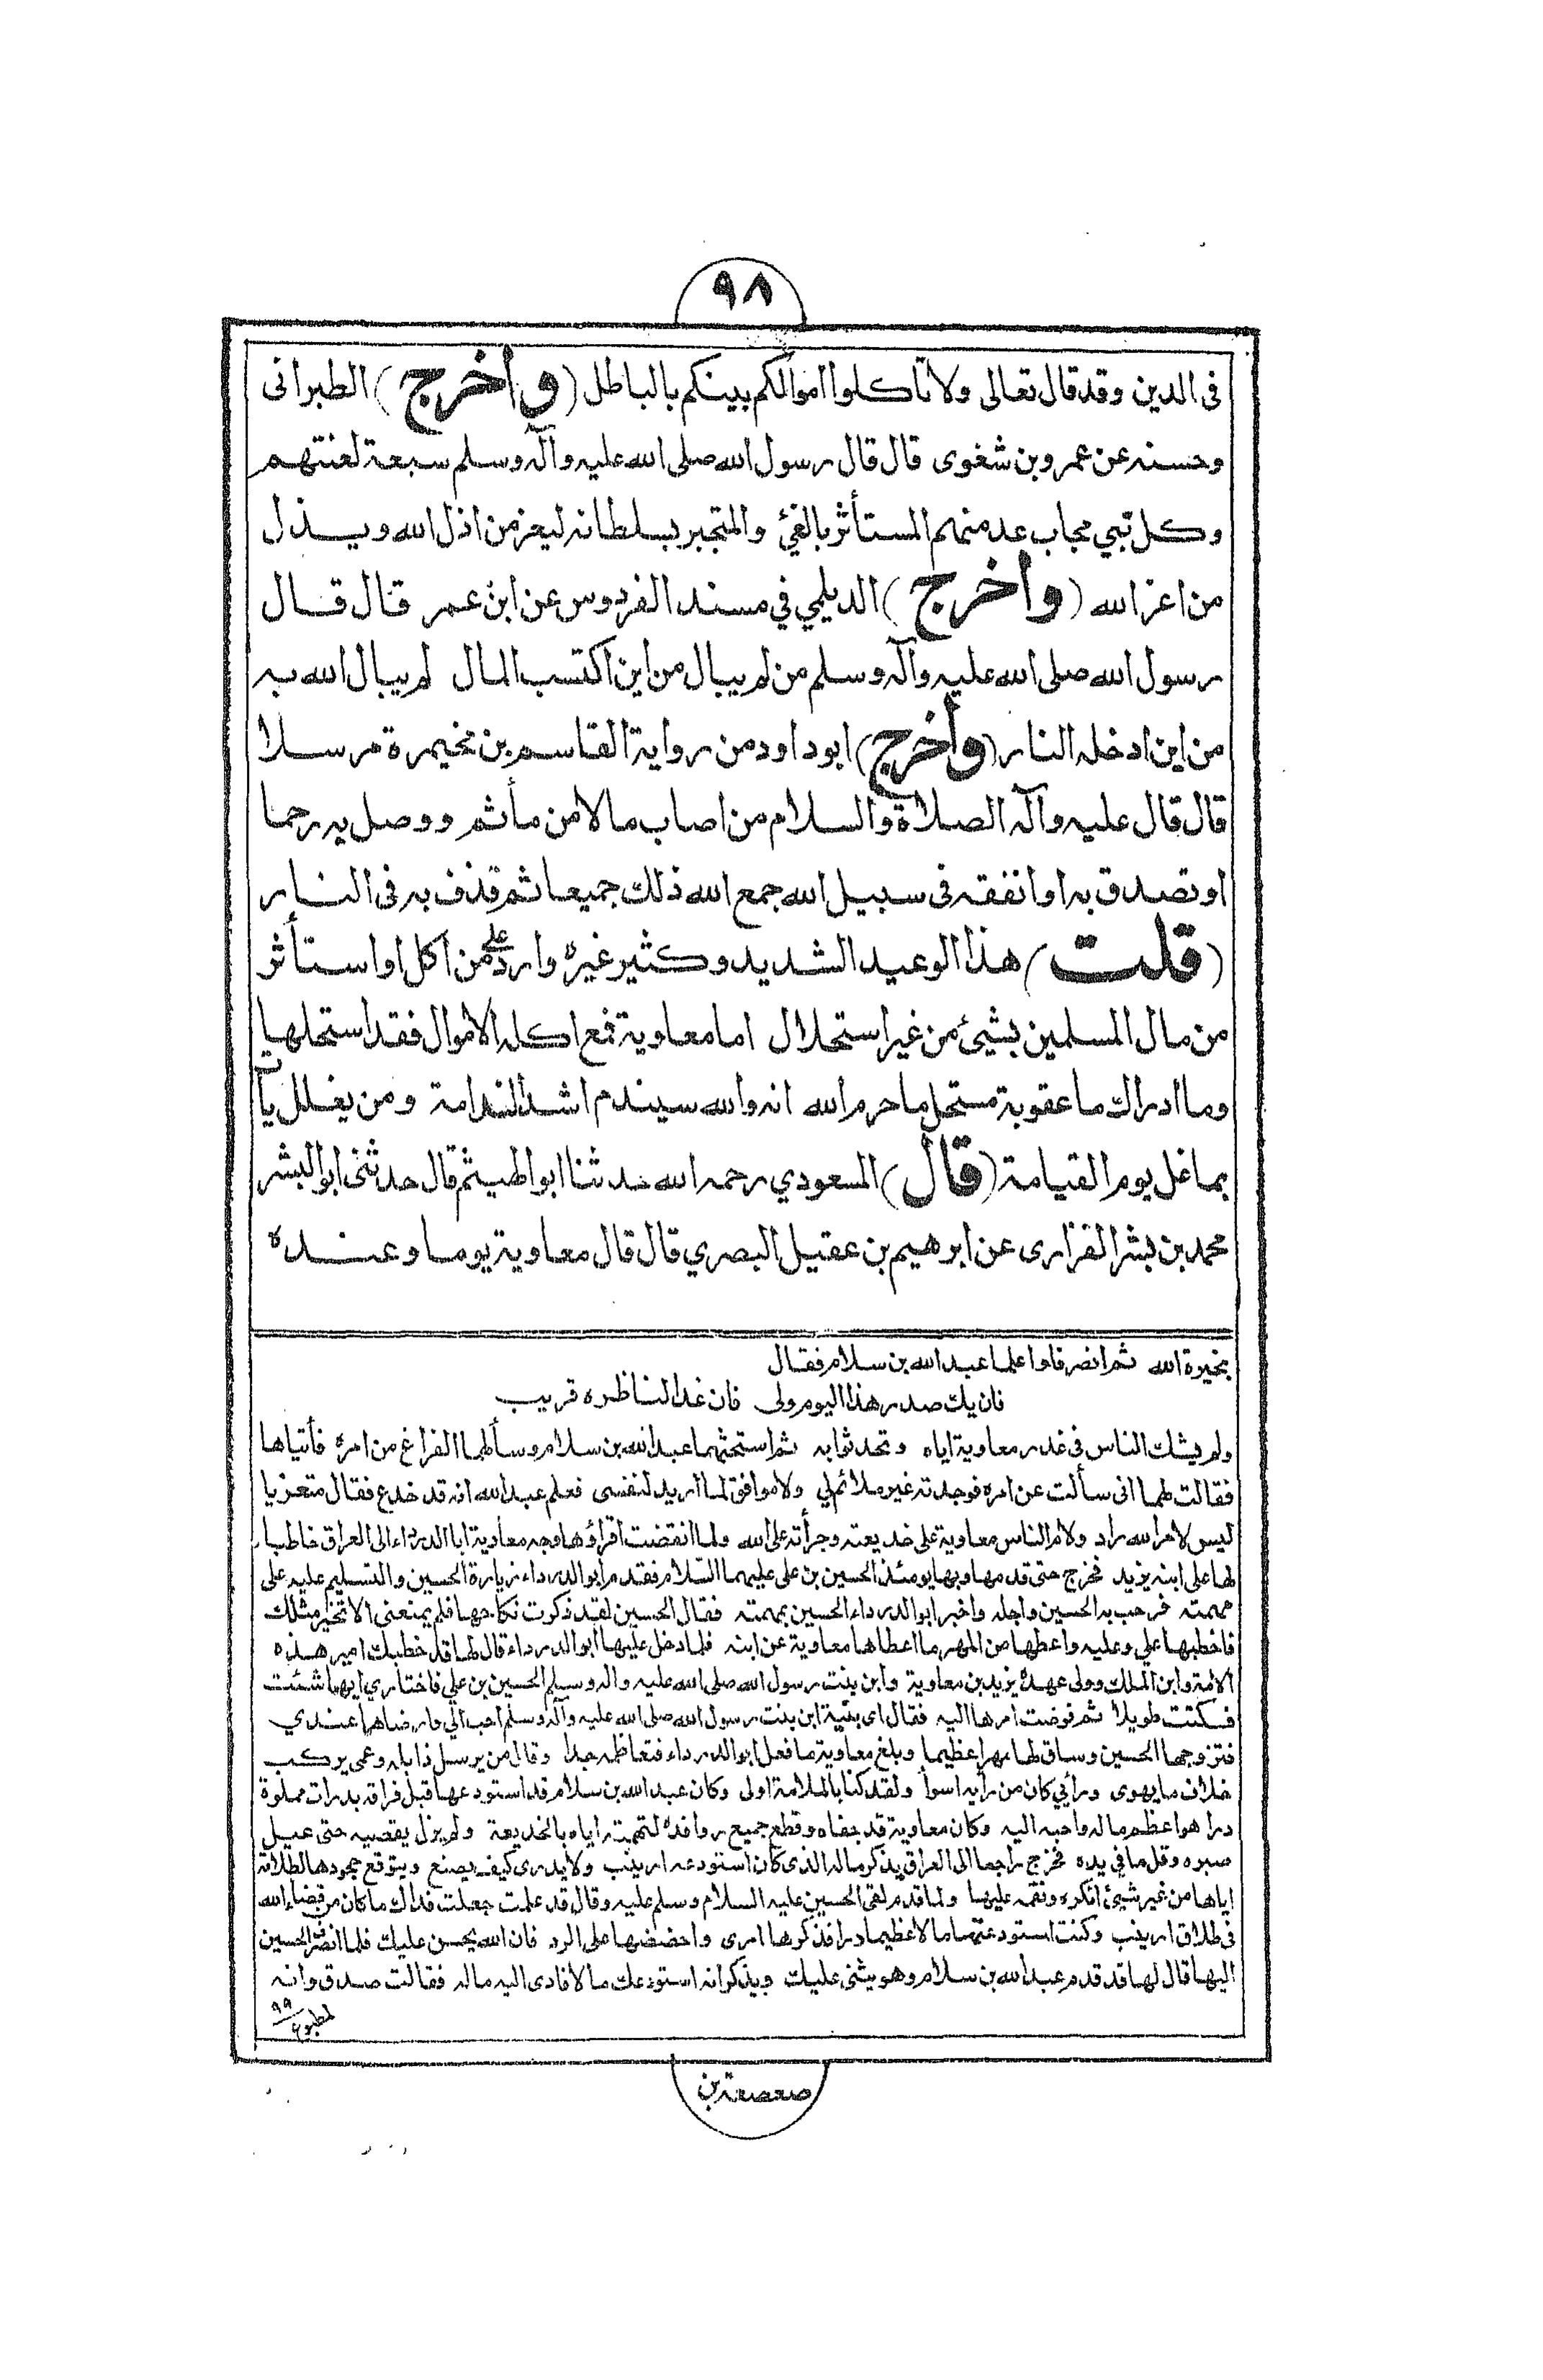 ٩٨
فى الدين وقد قال تعالى ولا تأكلوا اموالكم بينكم بالباطل (وأخرج) الطبرانى
وحسنه عن عمرو بن شغوى قال قال رسول الله صلى الله عليه وآله وسلم سبعة لعنتهم
وكل نبي مجاب عد منهم المستأثر بالفئ والمتجبر بسلطانه ليعز من اذل الله ويذل
من اعز الله (وأخرج) الديلمي في مسند الفردوس عن ابن عمر قال قال
رسول الله صلى الله عليه وآله وسلم من لم يبال من اين اكتسب المال لم يبال الله به
من اين ادخله النار (وأخرج) ابو داود من رواية القاسم بن مخيمرة مرسلا
قال قال عليه وآله الصلاة والسلام من اصاب مالا من مأثم ووصل به رحما
او تصدق به او انفقه فى سبيل الله جمع الله ذلك جميعا ثم قذف به فى النار
(قلت) هذا الوعيد الشديد وكثير غيره وارد على من اكل او استأثر
من مال المسلمين بشيئ من غير استحلال اما معاوية فمع اكله الاموال فقد استحلها
وما ادراك ما عقوبة مستحل ما حرم الله انه والله سيندم اشد الندامة ومن يغلل يأت
بما غل يوم القيامة (قال) المسعودي رحمه الله حدثنا ابو الهيثم قال حدثنى ابو البشر
محمد بن بشر الفزارى عن ابرهيم بن عقيل البصري قال قال معاوية يوما وعنده
بخيرة الله ثم انصرفا واعلما عبد الله بن سلام فقال
فان يك صدر هذا اليوم ولى فان غدا لناظره قريب
ولم يشك الناس فى غدر معاوية اياه وتحدثوا به ثم استحثهما عبد الله بن سلام وسألهما الفراغ من امره فأتياها
فقالت لهما انى سألت عن امره فوجدته غير ملائم لي ولا موافق لما اريد لنفسى فعلم عبد الله انه قد خدع فقال متعزيا
ليس لامر الله راد ولام الناس معاوية على خديعته وجرأته على الله ولما انقضت اقراؤها وجه معاوية ابا الدرداء الى العراق خاطبا
لها على ابنه يزيد فخرج حتى قدمها وبها يومئذ الحسين بن على عليهما السلام فقدم ابو الدرداء زيارة الحسين والتسليم عليه على
مهمته فرحب به الحسين واجله واخبر ابو الدرداء الحسين بمهمته فقال الحسين لقد ذكرت نكاحها فلم يمنعنى الا تخير مثلك
فاخطبها علي وعليه واعطها من المهر ما اعطاها معاوية عن ابنه فلما دخل عليها ابو الدرداء قال لها قد خطبك امير هذه
الامة وابن الملك وولى عهده يزيد بن معاوية وابن بنت رسول الله صلى الله عليه واله وسلم الحسين بن علي فاختاري ايهما شئت
فسكتت طويلا ثم فوضت امرها اليه فقال اى بنية ابن بنت رسول الله صلى الله عليه وآله وسلم احب الي وارضاهما عندي
فتزوجها الحسين وساق لها مهرا عظيما وبلغ معاوية ما فعل ابو الدرداء فتعاظمه جدا وقال من يرسل ذا بله وعمى يركب
خلاف ما يهوى ورأيي كان من رأيه اسوأ ولقد كنا بالملامة اولى وكان عبد الله بن سلام قد استودعها قبل فراقه بدرات مملوة
درا هو اعظم ماله واحبه اليه وكان معاوية قد جفاه وقطع جميع روافده لتهمته اياه بالخديعة ولم يزل يقصيه حتى عيل
صبره وقل ما في يده فخرج راجعا الى العراق يذكر ماله الذى كان استودعه ارينب ولا يدرى كيف يصنع ويتوقع جحودها لطلاقه
اياها من غير شيئ انكره ونقمه عليها ولما قدم لقى الحسين عليه السلام وسلم عليه وقال قد علمت جعلت فداك ما كان من قضاء الله
فى طلاق ارينب وكنت استودعتها مالا عظيما درا فذكرها امرى واحضضها على الرد فان الله يحسن عليك فلما انصرف الحسين
اليها قال لها قد قدم عبد الله بن سلام وهو يثنى عليك ويذكر انه استودعك مالا فادى اليه ماله فقالت صدق وانه
٩٩
صعصعة بن